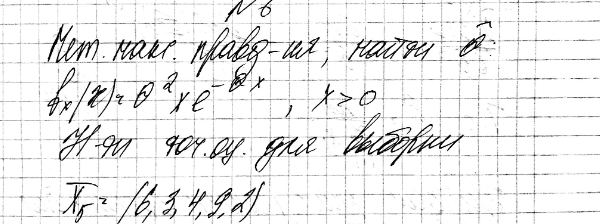 № 6
Мет. макс. правд-ия, найти θ̂
f_x(x) = θ² x e^{-θx} , x > 0
Н-ти точ. оц. для выборки
X̄₅ = (6, 3, 4, 9, 2)